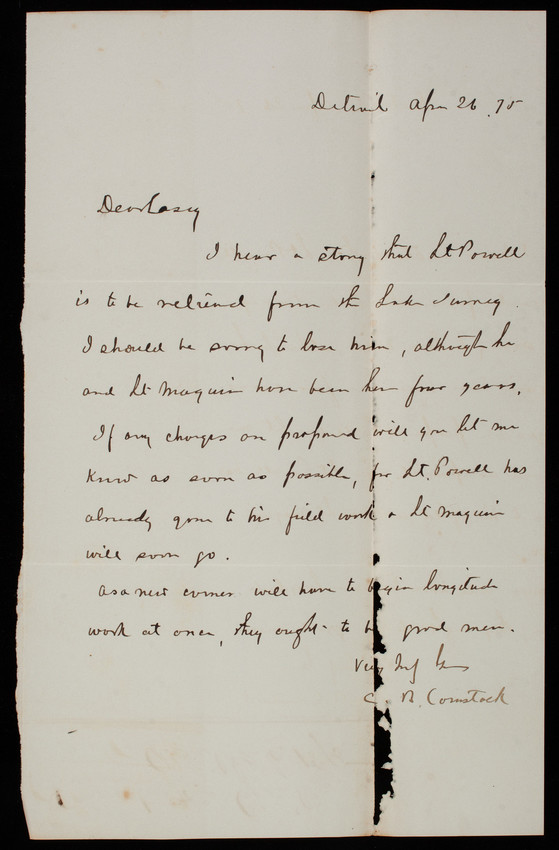 Detroit Apr 26. 75
Dear Casey
I hear a story that Lt Powell
is to be relieved from the Lake Survey.
I should be sorry to lose him, although he
and Lt Maguire have been here four years.
If any changes are proposed will you let me
know as soon as possible, for Lt. Powell has
already gone to his field work & Lt Maguire
will soon go.
As a new comer will have to begin longitude
work at once, they ought to be good men.
Very Truly Yours
C. B. Comstock